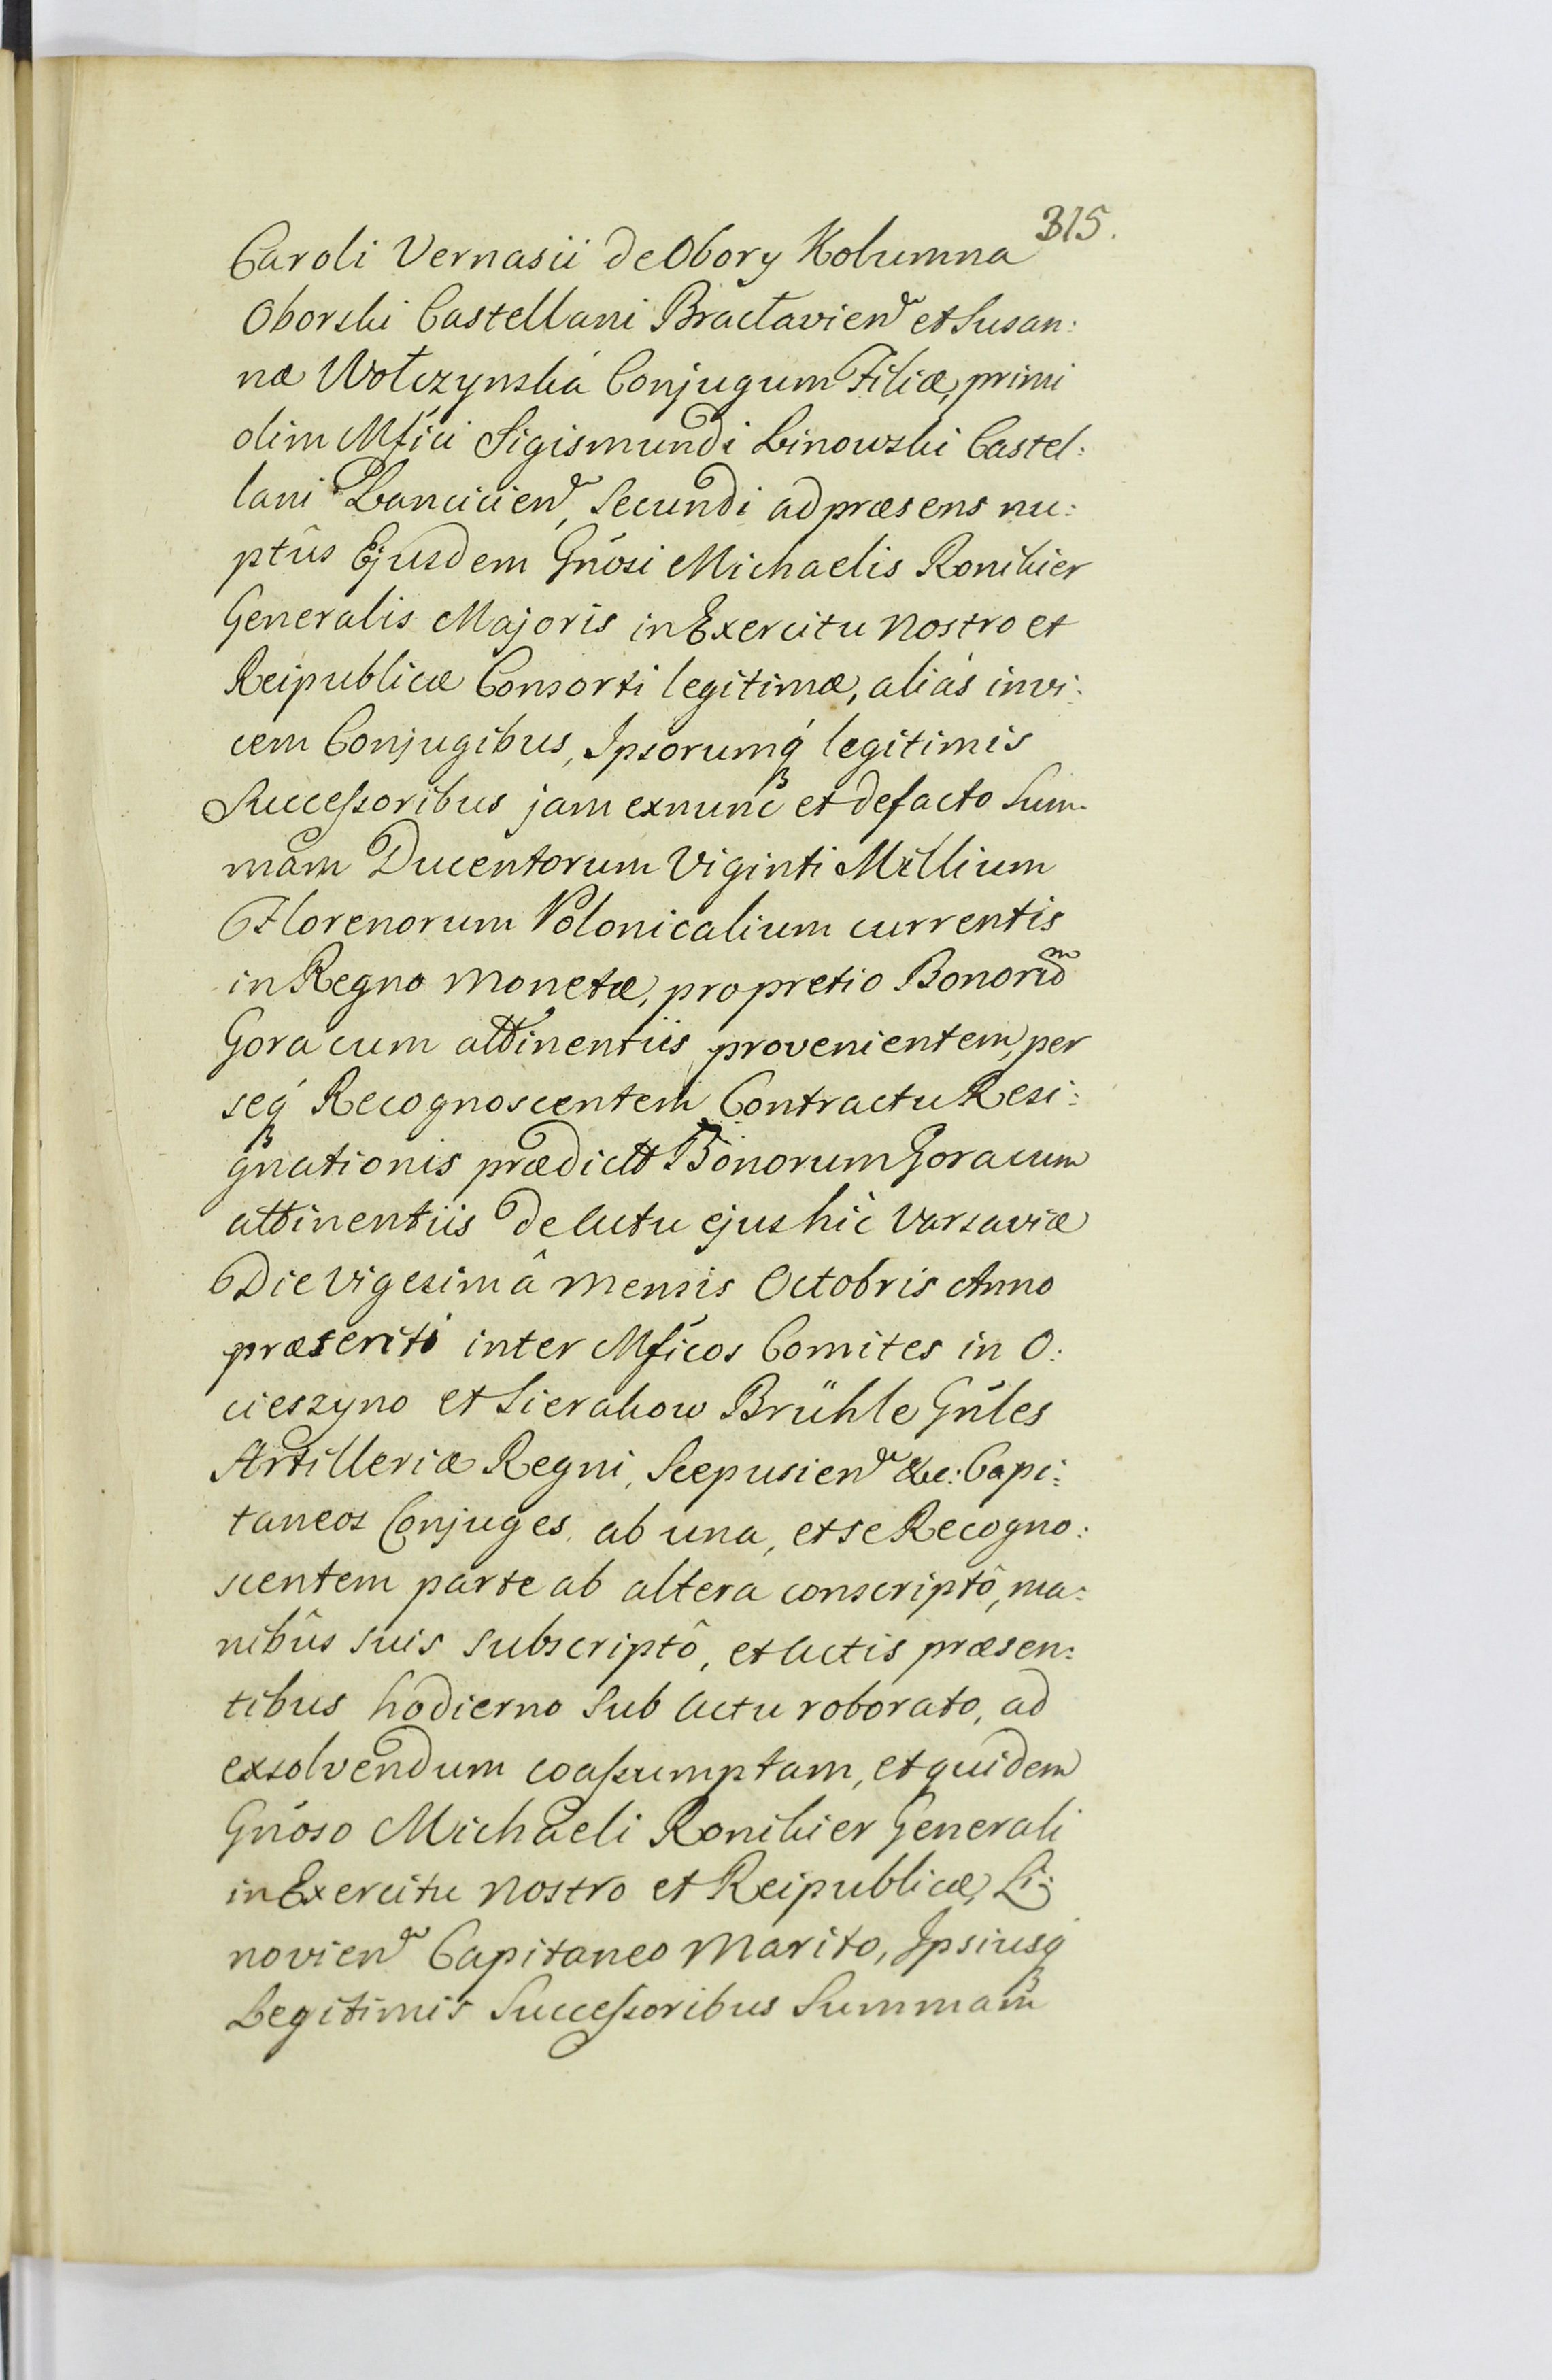 315.
Caroli Vernasii de Obory Kolumna
Oborski Castellani Bractavien et Susan:
næ Wołczynska Conjugum Filiæ, primi
olim Mfici Sigismundi Linowski Castel:
lani Lancicien, Secundi ad præsens nu:
ptûs Ejusdem Gnosi Michaelis Ronikier
Generalis Majoris in Exercitu Nostro et
Reipublicæ Consorti legitimæ, aliàs invi:
cem Conjugibus, Ipsorumq́ legitimis
Succeſsoribus jam exnunc et defacto Sum-
mam Ducentorum Viginti Millium
Florenorum Polonicalium currentis
in Regno Monetæ, pro pretio Bonorum
Gora cum attinentiis provenientem, per
seq́ Recognoscentem Contractu Resi:
gnationis prædictt Bonorum Gora cum
attinentiis de Actu ejus hic Varsaviæ
Die Vigesimâ Mensis Octobris Anno
præsenti inter Mficos Comites in O:
cieszyno et Sierakow Brühle Gńles
Artilleriæ Regni, Scepusien &c: Capi:
taneos Conjuges ab una, et se Recogno:
scentem parte ab altera conscriptô, ma:
nibûs suis subscriptô, et Actis præsen:
tibus hodierno sub Actu roborato, ad
exsolvendum coaſsumptam, et quidem
Gnoso Michaeli Ronikier Generali
in Exercitu Nostro et Reipublicæ, Li:
novien Capitaneo Marito, Ipsiusq́
Legitimis Succeſsoribus Summam